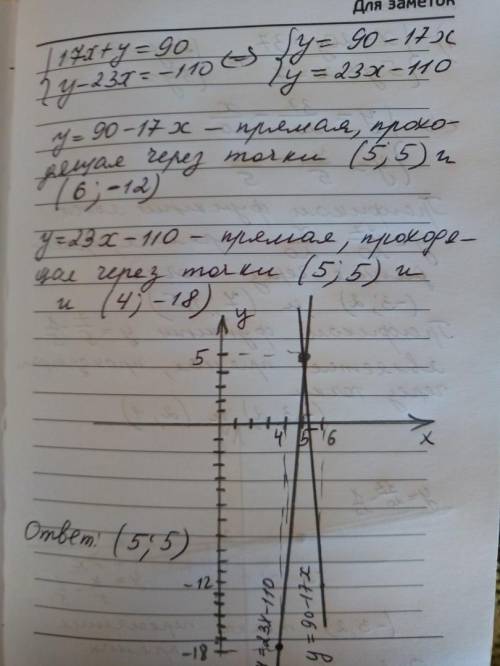 Для заметок
{17x+y=90 {y=90-17x
{y-23x=-110 <=> {y=23x-110
y=90-17x - прямая, прохо-
дящая через точки (5;5) и
(6;-12)
y=23x-110 - прямая, проходя-
щая через точки (5;5) и
и (4;-18)
y
5
4 5 6 x
Ответ: (5;5)
-12
-18
y=23x-110
y=90-17x